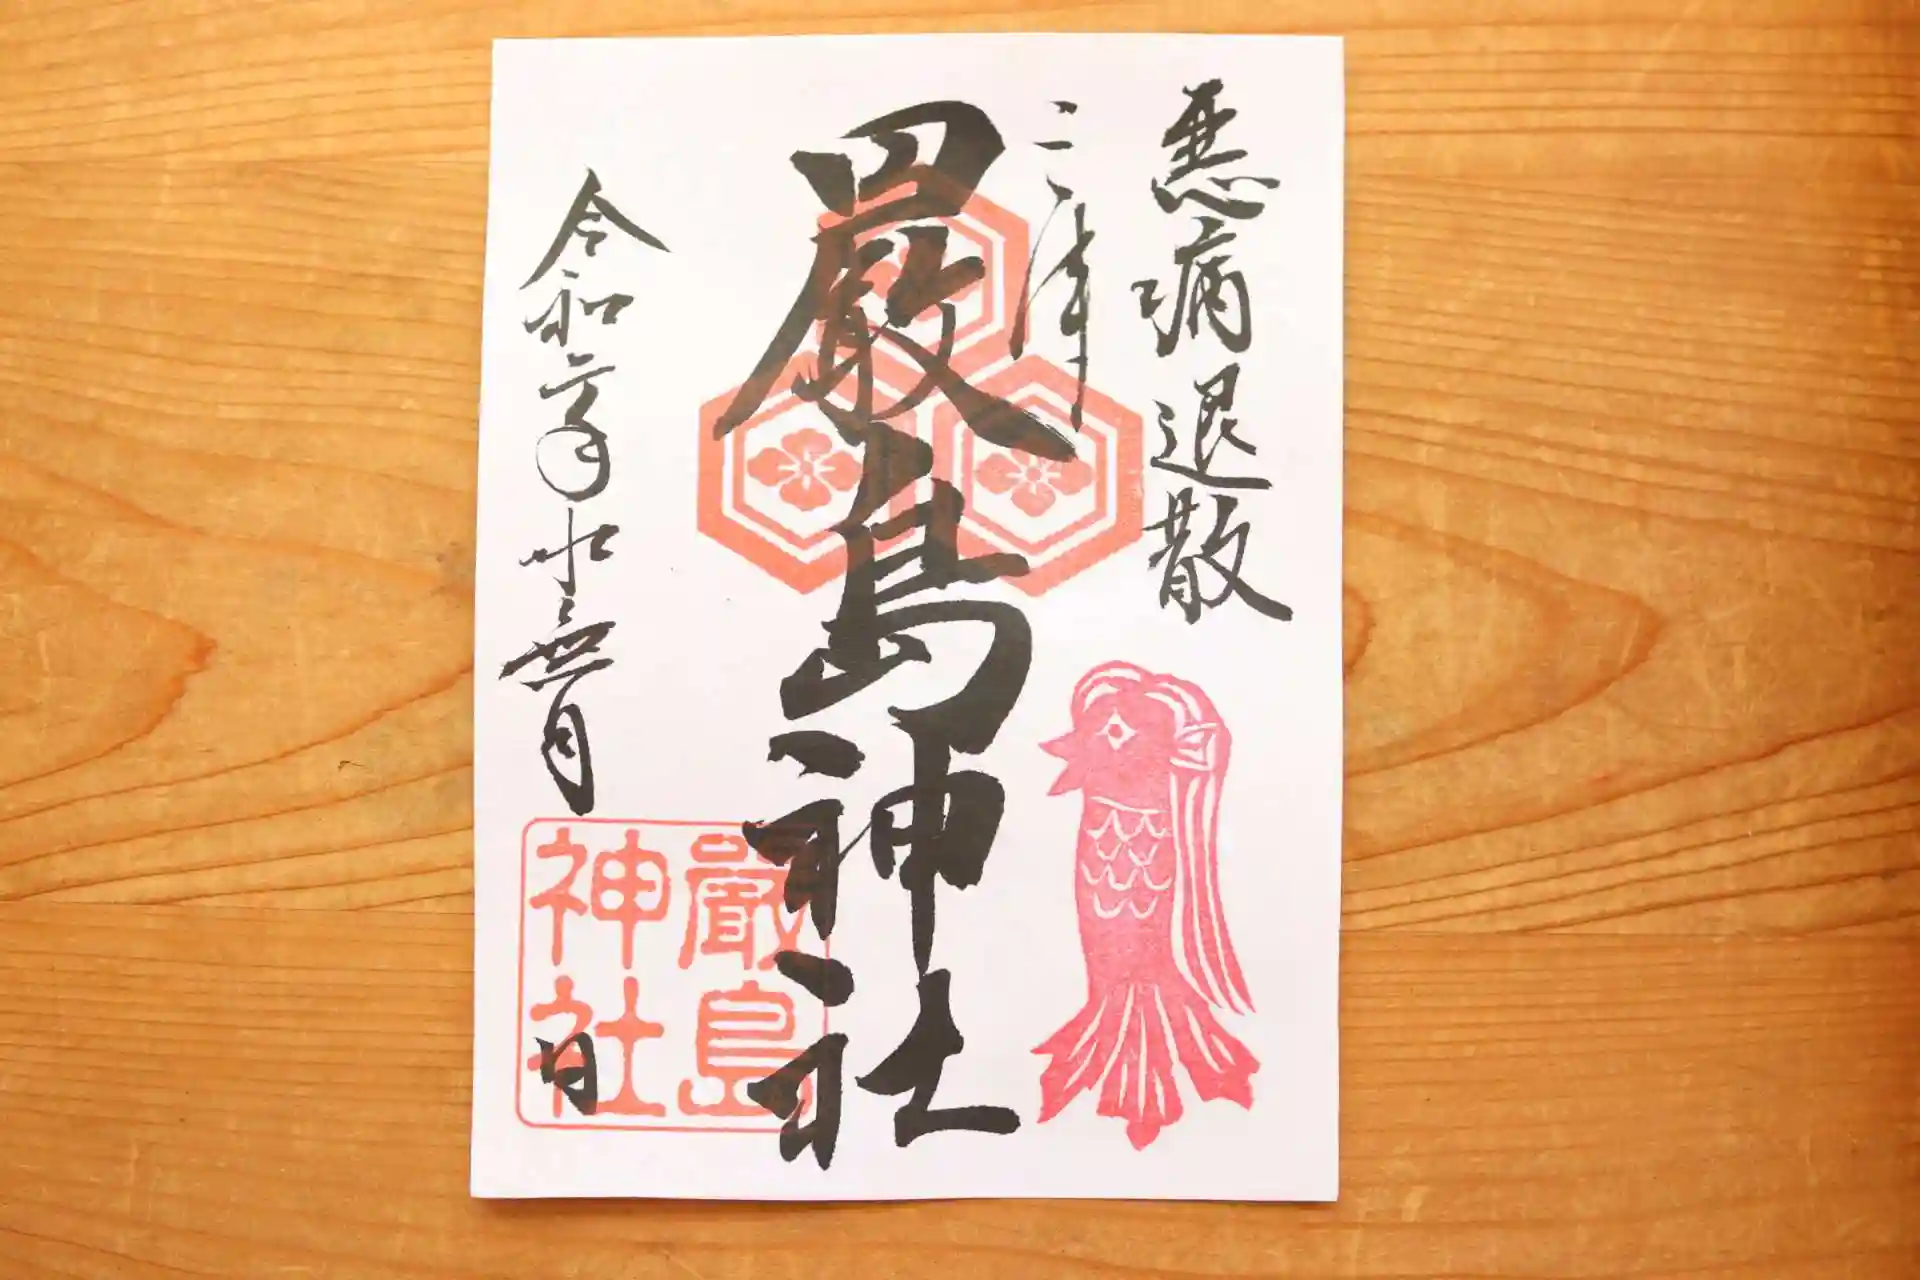 悪病退散
二津
嚴島神社
令和二年水無月
日
嚴島
神社